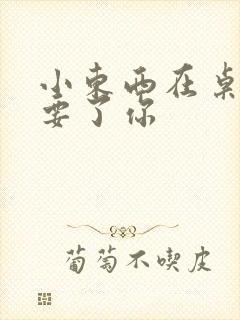 小东西在桌
要了你
葡萄不喫皮